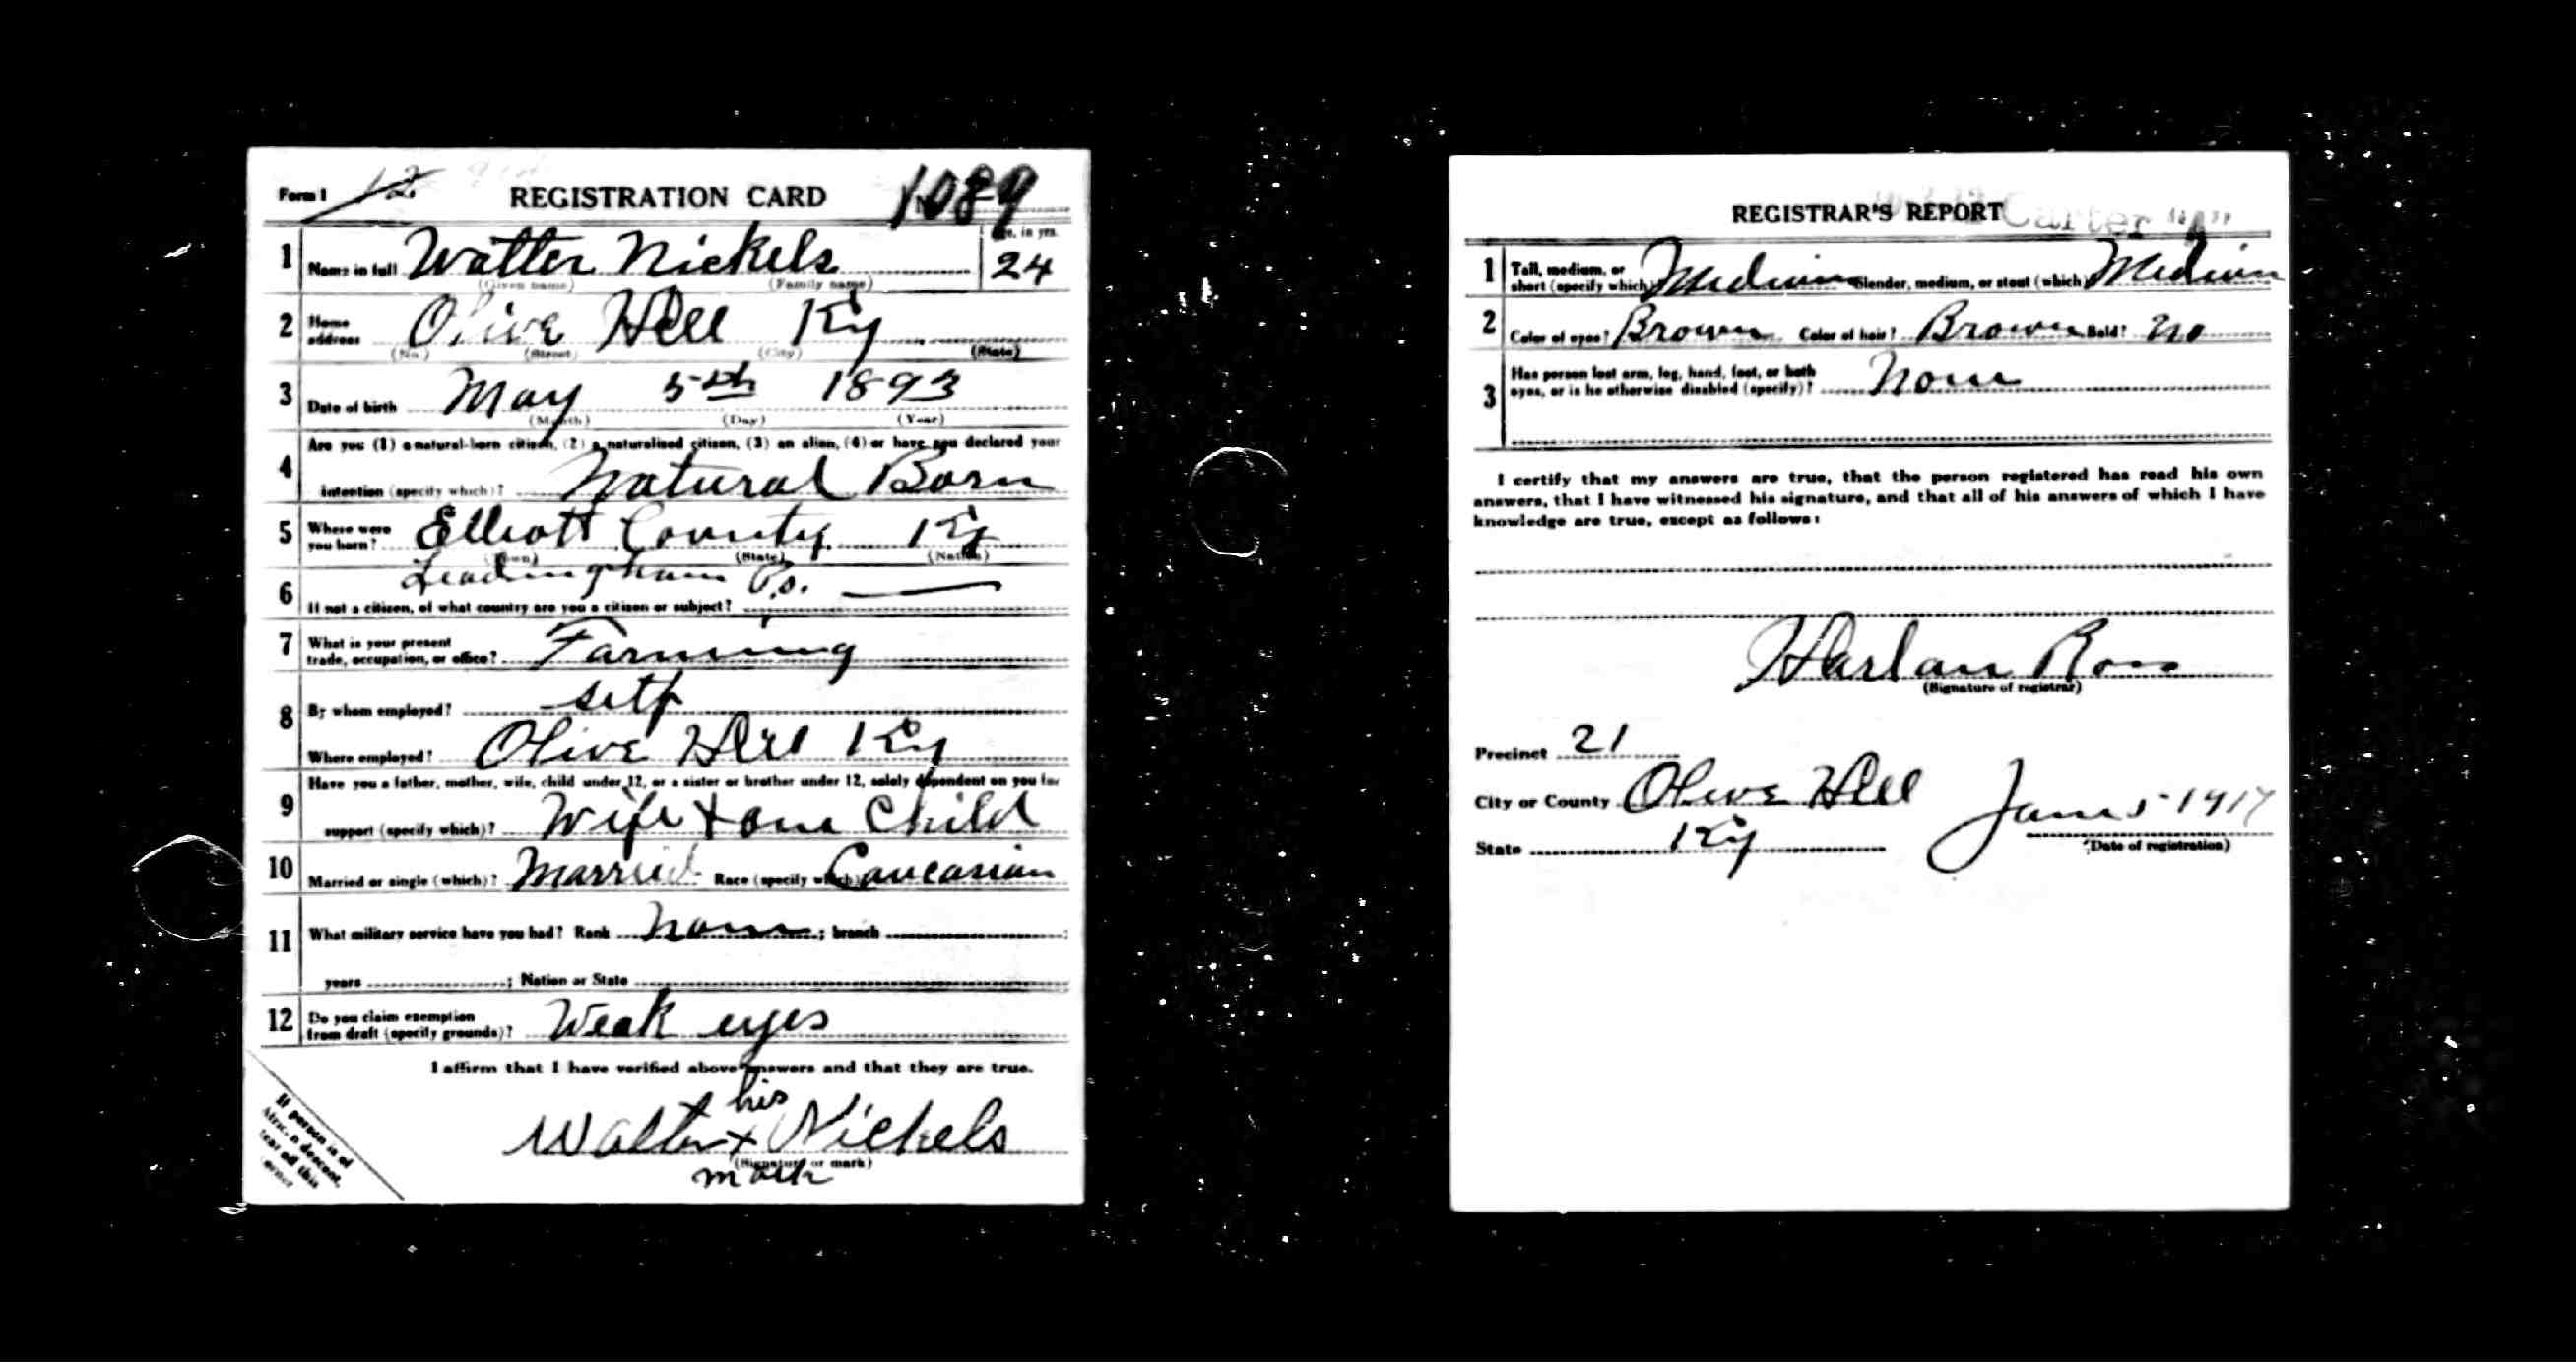 Form 1 12 REGISTRATION CARD 1089
1 Name in full Walter Nickels Age, in yrs. 24
(Given name) (Family name)
2 Home address Olive Hill Ky
(No.) (Street) (City) (State)
3 Date of birth May 5th 1893
(Month) (Day) (Year)
Are you (1) a natural-born citizen, (2) a naturalized citizen, (3) an alien, (4) or have you declared your
4 intention (specify which)? Natural Born
5 Where were you born? Elliott County Ky
(Town) (State) (Nation)
Leadingham P.O.
6 If not a citizen, of what country are you a citizen or subject?
7 What is your present trade, occupation, or office? Farming
8 By whom employed? self
Where employed? Olive Hill Ky
Have you a father, mother, wife, child under 12, or a sister or brother under 12, solely dependent on you for
9 support (specify which)? Wife + one Child
10 Married or single (which)? Married Race (specify which)? Caucasian
11 What military service have you had? Rank none ; branch ;
years ; Nation or State
12 Do you claim exemption from draft (specify grounds)? Weak eyes
I affirm that I have verified above answers and that they are true.
his
Walter x Nickels
(Signature or mark)
mark
If person is of
African descent,
tear off this
corner
REGISTRAR'S REPORT Carter
1 Tall, medium, or short (specify which)? Medium Slender, medium, or stout (which)? Medium
2 Color of eyes? Brown Color of hair? Brown Bald? No
3 Has person lost arm, leg, hand, foot, or both eyes, or is he otherwise disabled (specify)? None
I certify that my answers are true, that the person registered has read his own
answers, that I have witnessed his signature, and that all of his answers of which I have
knowledge are true, except as follows:
Harlan Ross
(Signature of registrar)
Precinct 21
City or County Olive Hill
State Ky
June 5 1917
(Date of registration)